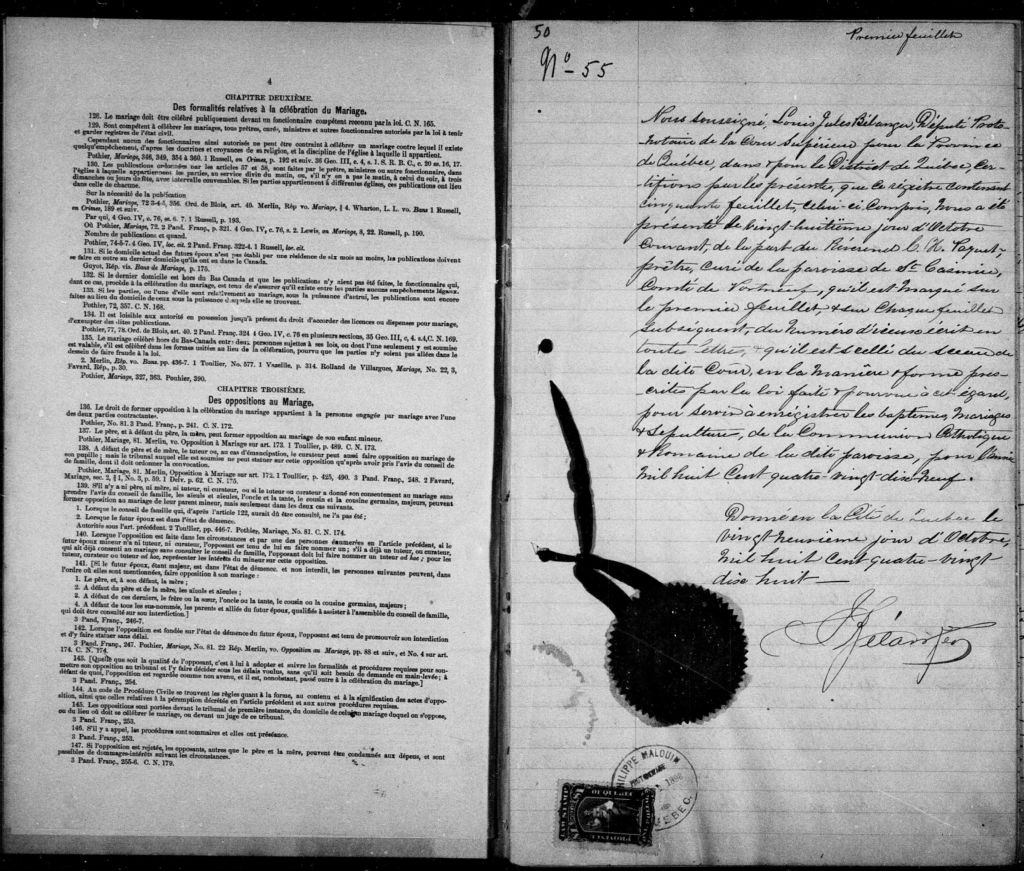 4
CHAPITRE DEUXIÈME.
Des formalités relatives à la célébration du Mariage.
128. Le mariage doit être célébré publiquement devant un fonctionnaire compétent reconnu par la loi. C. N. 165.
129. Sont compétents à célébrer les mariages, tous prêtres, curés, ministres et autres fonctionnaires autorisés par la loi à tenir
et garder registres de l'état civil.
Cependant aucun des fonctionnaires ainsi autorisés ne peut être contraint à célébrer un mariage contre lequel il existe
quelqu'empêchement, d'après les doctrines et croyances de sa religion, et la discipline de l'église à laquelle il appartient.
Pothier, Mariage, 346, 349, 354 à 360. 1 Russell, on Crimes, p. 192 et suiv. 36 Geo. III, c. 4, s. 1. S. R. B. C., c. 20 ss. 16, 17.
130. Les publications ordonnées par les articles 57 et 58, sont faites par le prêtre, ministre ou autre fonctionnaire, dans
l'église à laquelle appartiennent les parties, au service divin du matin, ou, s'il n'y en a pas le matin, à celui du soir, à trois
dimanches ou jours de fête, avec intervalle convenables. Si les parties appartiennent à différentes églises, ces publications ont lieu
dans celle de chacune.
Sur la nécessité de la publication
Pothier, Mariage, 72 3-4-5, 356. Ord. de Blois, art. 40. Merlin, Rép vo. Mariage, § 4. Wharton, L. L. vo. Bans 1 Russell,
on Crimes, 189 et suiv.
Par qui, 4 Geo. IV, c. 76, ss. 6. 7. 1 Russell, p. 193.
Où Pothier, Mariage, 72. 2 Pand. Franç., p. 321. 4 Geo. IV, c. 76, s. 2. Lewis, on Mariage, 8, 22. Russell, p. 190.
Nombre de publications et quand.
Pothier, 74-5-7. 4 Geo. IV, loc. cit. 2 Pand. Franç. 322-4. 1 Russell, loc. cit.
131. Si le domicile actuel des futurs époux n'est pas établi par une résidence de six mois au moins, les publications doivent
se faire en outre au dernier domicile qu'ils ont eu dans le Canada.
Guyot, Rép. vis. Bans de Mariage, p. 175.
132. Si le dernier domicile est hors du Bas Canada et que les publications n'y aient pas été faites, le fonctionnaire qui,
dans ce cas, procède à la célébration du mariage, est tenu de s'assurer qu'il existe entre les parties aucuns empêchements légaux.
133. Si les parties, ou l'une d'elle sont relativement au mariage, sous la puissance d'autrui, les publications sont encore
faites au lieu du domicile de ceux sous la puissance desquels elle se trouvent.
Pothier, 72, 357. C. N. 168.
134. Il est loisible aux autorité en possession jusqu'à présent du droit d'accorder des licences ou dispenses pour mariage,
d'exempter des dites publications.
Pothier, 77, 78. Ord. de Blois, art. 40. 2 Pand. Franç. 324 4 Geo. IV, c. 76 en plusieurs sections, 35 Geo. III, c. 4. s.4, C. N. 169.
135. Le mariage célébré hors du Bas-Canada entre deux personnes sujettes à ses lois, ou dont l'une seulement y est soumise
est valable, s'il est célébré dans les formes usitées au lieu de la célébration, pourvu que les parties n'y soient pas allées dans le
dessein de faire fraude à la loi.
2. Merlin, Rép. vo. Bans, pp. 436-7. 1 Toulier, No. 577. 1 Vazeille, p. 314. Rolland de Villargues, Mariage, No. 22, 3,
Favard, Rép., p. 30.
Pothier, Mariage, 327, 363. Pouhier, 390.
CHAPITRE TROISIÈME.
Des oppositions au Mariage.
136. Le droit de former opposition à la célébration du mariage appartient à la personne engagée par mariage avec l'une
des deux parties contractantes.
Pothier, No. 81. 3 Pand. Franç., p. 241. C. N. 172.
137. Le père, et à défaut du père, la mère, peut former opposition au mariage de son enfant mineur.
Pothier, Mariage, 81. Merlin, vo. Opposition à Mariage sur art. 173. 1 Toullier, p. 489. C. N. 173.
138. A défaut de père et de mère, le tuteur ou, au cas d'émancipation, le curateur peut aussi faire opposition au mariage de
son pupille ; mais le tribunal auquel elle est soumise ne peut statuer sur cette opposition qu'après avoir pris l'avis du conseil de
famille, dont il doit ordonner la convocation.
Pothier, Mariage, 81. Merlin, Opposition à Mariage sur art. 173. 1 Toullier, p. 425, 490. 3 Pand. Franç., 248. 2 Favard,
Mariage, sec. 2, § 1, No. 3, p. 59. 1 Delv. p. 62. C. N. 175.
139. S'il n'y a ni père, ni mère, ni tuteur, ni curateur, ou si le tuteur ou curateur a donné son consentement au mariage sans
prendre l'avis du conseil de famille, les aïeuls et aïeules, l'oncle et la tante, le cousin et la cousine germains, majeurs, peuvent
former opposition au mariage de leur parent mineur, mais seulement dans les deux cas suivants.
1. Lorsque le conseil de famille qui, d'après l'article 122, aurait dû être consulté, ne l'a pas été ;
2. Lorsque le futur époux est dans l'état de démence.
Autorités sous l'art. précédent. 2 Toullier, pp. 446-7. Pothier, Mariage, No. 81. C. N. 174.
140. Lorsque l'opposition est faite dans les circonstances et par une des personnes énumérées en l'article précédent, si le
futur époux mineur n'a ni tuteur, ni curateur, l'opposant est tenu de lui en faire nommer un ; s'il a déjà un tuteur, ou curateur,
qui ait déjà consenti au mariage sans consulter le conseil de famille, l'opposant doit lui faire nommer un tuteur ad hoc ; pour les
tuteur, curateur ou tuteur ad hoc, représenter les intérêts du mineur sur cette opposition.
141. [Si le futur époux, étant majeur, est dans l'état de démence, et non interdit, les personnes suivantes peuvent, dans
l'ordre où elles sont mentionnées, faire opposition à son mariage :
1. Le père, et, à son défaut, la mère ;
2. A défaut du père et de la mère, les aïeuls et aïeules ;
3. A défaut de ces derniers, le frère ou la sœur, l'oncle ou la tante, le cousin ou la cousine germains, majeurs ;
4. A défaut de tous les sus-nommés, les parents et alliés du futur époux, qualifiés à assister à l'assemblée du conseil de famille,
qui doit être consulté sur son interdiction.]
3 Pand, Franç., 246-7.
142. Lorsque l'opposition est fondée sur l'état de démence du futur époux, l'opposant est tenu de promouvoir son interdiction
et d'y faire statuer sans délai.
3 Pand. Franç., 247. Pothier, Mariage, No. 81. 22 Rép. Merlin, vo. Opposition au Mariage, pp. 88 et suiv., et No. 4 sur art.
174. C. N. 174.
143. [Quelle que soit la qualité de l'opposant, c'est à lui à adopter et suivre les formalités et procédures requises pour sou-
mettre son opposition au tribunal et l'y faire décider sous les délais voulus, sans qu'il soit besoin de demande en main-levée ; à
défaut de quoi, l'opposition est regardée comme non avenu, et il est, nonobstant, passé outre à la célébration du mariage.]
3 Pand. Franç., 254.
144. Au code de Procédure Civile se trouvent les règles quant à la forme, au contenu et à la signification des actes d'oppo-
sition, ainsi que celles relatives à la péremption décrétée en l'article précédent et aux autres procédures requises.
145. Les oppositions sont portées devant le tribunal de première instance, du domicile de celui au mariage duquel on s'oppose,
ou du lieu où doit se célébrer le mariage, ou devant un juge de ce tribunal.
3 Pand. Franç., 253.
146. S'il y a appel, les procédures sont sommaires et elles ont préséance.
3 Pand. Franç., 253.
147. Si l'opposition est rejetée, les opposants, autres que le père et la mère, peuvent être condamnés aux dépens, et sont
passibles de dommages-intérêts suivant les circonstances.
3 Pand. Franç., 255-6. C. N. 179.
50
No - 55
Premier feuillet
Nous soussigné, Louis Jules Bélanger, Député Proto-
notaire de la Cour Supérieure pour la Province
de Québec, dans & pour le District de Québec, Cer-
tifions par les présentes, que ce régistre contenant
cinquante feuillets, celui-ci compris, nous a été
présenté le vingt huitième jour d'Octobre
Courant, de la part du Révérend C. R. Paquet,
prêtre, curé de la paroisse de St Casimir,
Comté de Portneuf, qu'il est marqué sur
le premier feuillet, & sur chaque feuillet
subséquent, du numéro d'iceux écrit en
toute lettre, & qu'il est scellé du sceau de
la dite Cour, en la manière & forme pres-
crites par la loi faite & pourvue à cet égard,
pour servir à enregistrer les baptêmes, Mariages
& Sépultures, de la Communion Catholique
& Romaine de la dite paroisse, pour l'année
mil huit Cent quatre-vingt dix neuf.
Donné en la Cité de Québec le
vingt neuvième jour d'Octobre,
mil huit Cent quatre-vingt
dix huit —
J Bélanger
PHILIPPE MALOUIN
QUEBEC.
LAW STAMP
OF QUEBEC
PROVINCE
$1